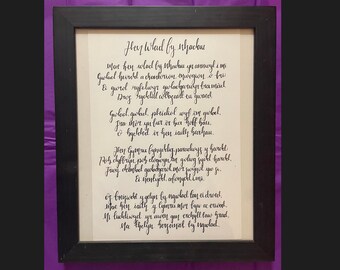 Hen Wlad fy Nhadau
Mae hen wlad fy Nhadau yn annwyl i mi
Gwlad beirdd a chantorion enwogion o fri
Ei gwrol ryfelwyr gwladgarwyr tra mad
Dros ryddid collasant eu gwaed
Gwlad, gwlad, pleidiol wyf i'm gwlad
Tra môr yn fur i'r bur hoff bau
O bydded i'r hen iaith barhau
Hen Gymru fynyddig paradwys y bardd
Pob dyffryn pob clogwyn i'm golwg sydd hardd
Trwy deimlad gwladgarol mor swynol yw si
Ei nentydd afonydd i mi
Os treisiodd y gelyn fy ngwlad tan ei droed
Mae hen iaith y Cymry mor fyw ag erioed
Ni luddiwyd yr awen gan erchyll law brad
Na thelyn berseiniol fy ngwlad